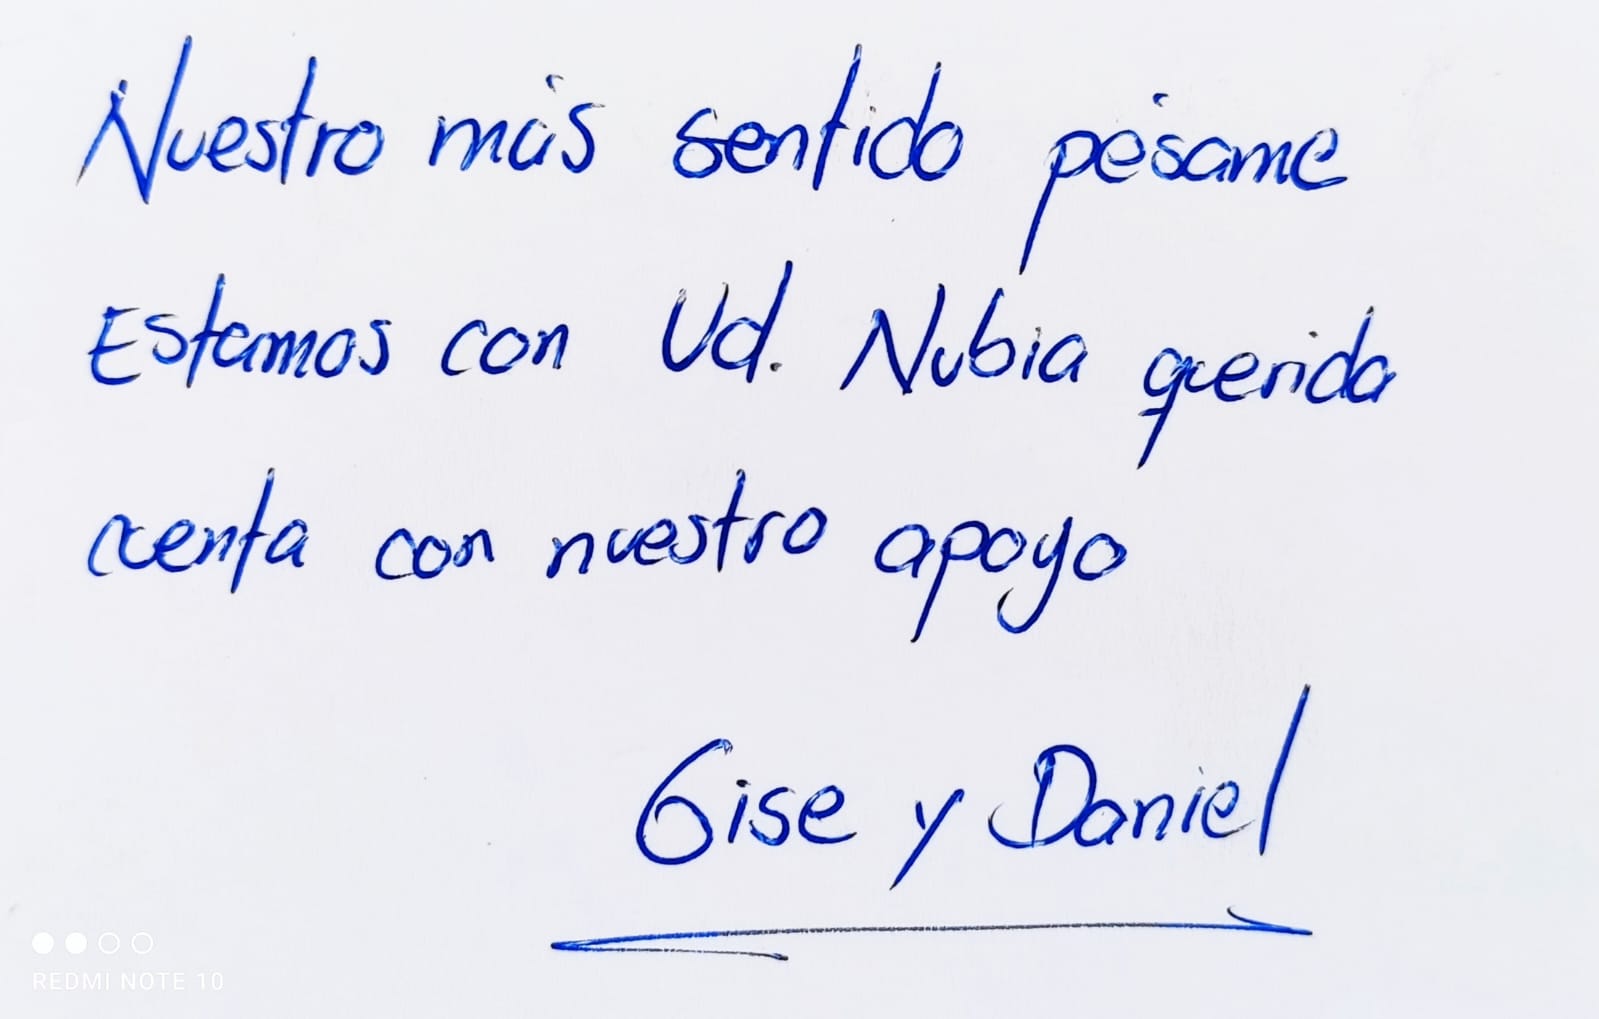 Nuestro más sentido pésame
Estamos con Ud. Nubia querida
cuenta con nuestro apoyo
Gise y Daniel
REDMI NOTE 10